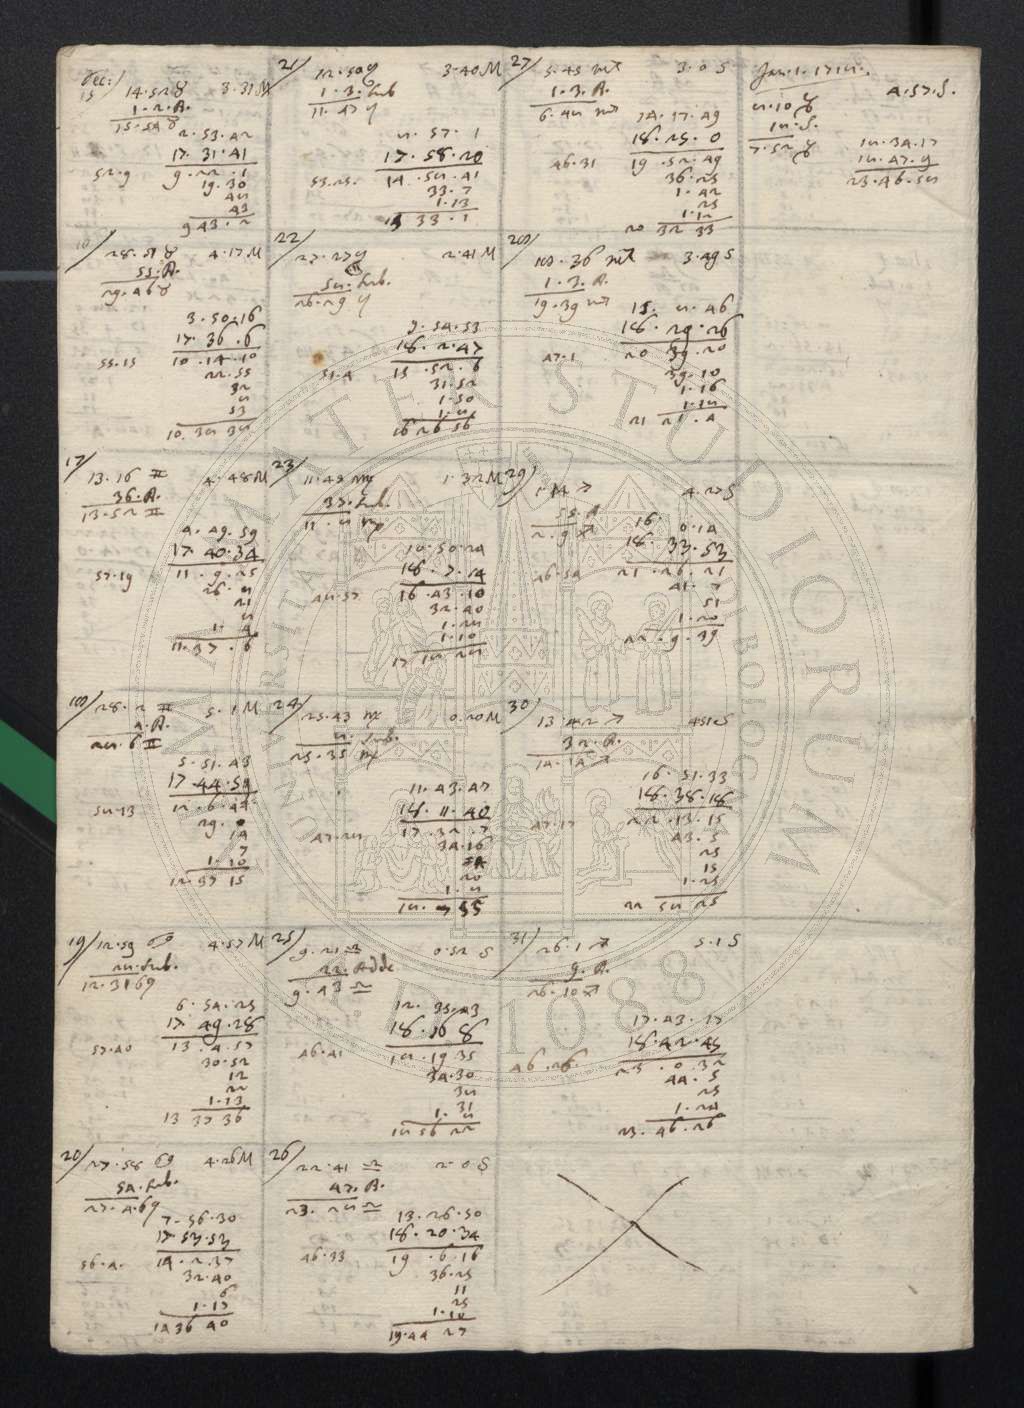 Dec:
15/ 14.52 ♉ 3.31 M
1.2.A.
15.54 ♉
2.53.42
17.31.41
52.9 9.22.1
19.30
48
43
9 43.2
16/ 28.51 ♉ 4.17 M
55.A.
29.46 ♉
3.50.16
17.36.6
55.15 10.14.10
22.55
32
8
53
10.38 38
17/ 13.16 ♊ 4.48 M
36.A.
13.52 ♊
4.49.59
17.40.34
57.19 11.9.25
26.8
21
8
1.4
11.37.6
18/ 28.2 ♊ 5.1 M
4.A.
28.6 ♊
5.51.43
17 44.59
58.13 12.6.44
29.0
14
7
1.10
12.37 15
19/ 12.59 ♋ 4.57 M
28.Sub.
12.31 ♋
6.54.25
17 49.28
57.40 13.4.57
30.52
12
22
1.13
13 37 36
20/ 27.58 ♋ 4.26 M
54.Sub.
27.4 ♋
7.56.30
17 53.53
56.4. 14.2.37
32.40
6
1.17
14 36 40
21/ 12.50 ♌ 3.40 M
1.3.Sub
11.47 ♌
8.57.1
17.58.20
53.25. 14.58.41
33.7
1.13
15 33.1
22/ 27.27 ♌ 2.41 M
58.Sub.
26.29 ♌
9.54.53
18.2.47
51.4 15.52.6
31.52
1.50
1.8
16 26 56
23/ 11.45 ♍ 1.32 M
37.Sub.
11.8 ♍
10.50.24
18.7.14
48.57 16.43.10
32.40
1.28
1.10
17 18 28
24/ 25.43 ♍ 0.20 M
8.Sub.
25.35 ♍
11.43.47
18.11.40
47.28 17.32.7
34.16
20
1.8
18.7 55
25/ 9.21 ♎ 0.52 S
22.Adde
9.43 ♎
12.35.43
18.16 8
46.41 18.19 35
34.30
38
31
1.8
18 56 22
26/ 22.41 ♎ 2.0 S
47.A.
23.28 ♎
13.26.50
18.20.34
46.33 19.6.16
36.25
11
25
1.10
19.44 27
27/ 5.45 ♏ 3.0 S
1.3.A.
6.48 ♏
14.17.49
18.25.0
46.31 19.52.49
36.25
1.42
25
1.12
20 32 33
28/ 18.36 ♏ 3.49 S
1.3.A.
19.39 ♏
15.8.46
18.29.26
47.1 20 39.20
39.10
1.16
1.18
21 21.4
29/ 1.14 ♐ 4.27 S
55.A
2.9 ♐
16. 0.14
18.33.53
46.54 21.26.21
41.7
51
1.20
22.9.39
30/ 13.42 ♐ 4.51 S
32.A.
14.14 ♐
16.51.33
18.38.18
47.17 22.13.15
43.5
25
15
1.25
22 58 25
31/ 26.1 ♐ 5.1 S
9.A.
26.10 ♐
17.43.17
18.42.45
46.26. 23.0.32
44.5
25
1.24
23.46.26
Jan.1.1718.
4.57.S.
8.10 ♑
18.S.
7.52 ♑
18.34.17
18.47.9
23.46.58
ALMA MATER STUDIORUM
UNIVERSITAS BONONIENSIS
A.D. 1088